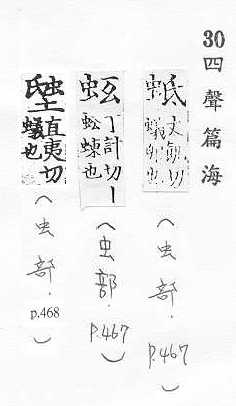 30 四聲篇海
蚳 丈切 蟻卵也
（虫部．p.467）
丁計切 丨 蚣蝀也
（虫部．p.467）
直夷切 蟻也
（虫部．p.468）